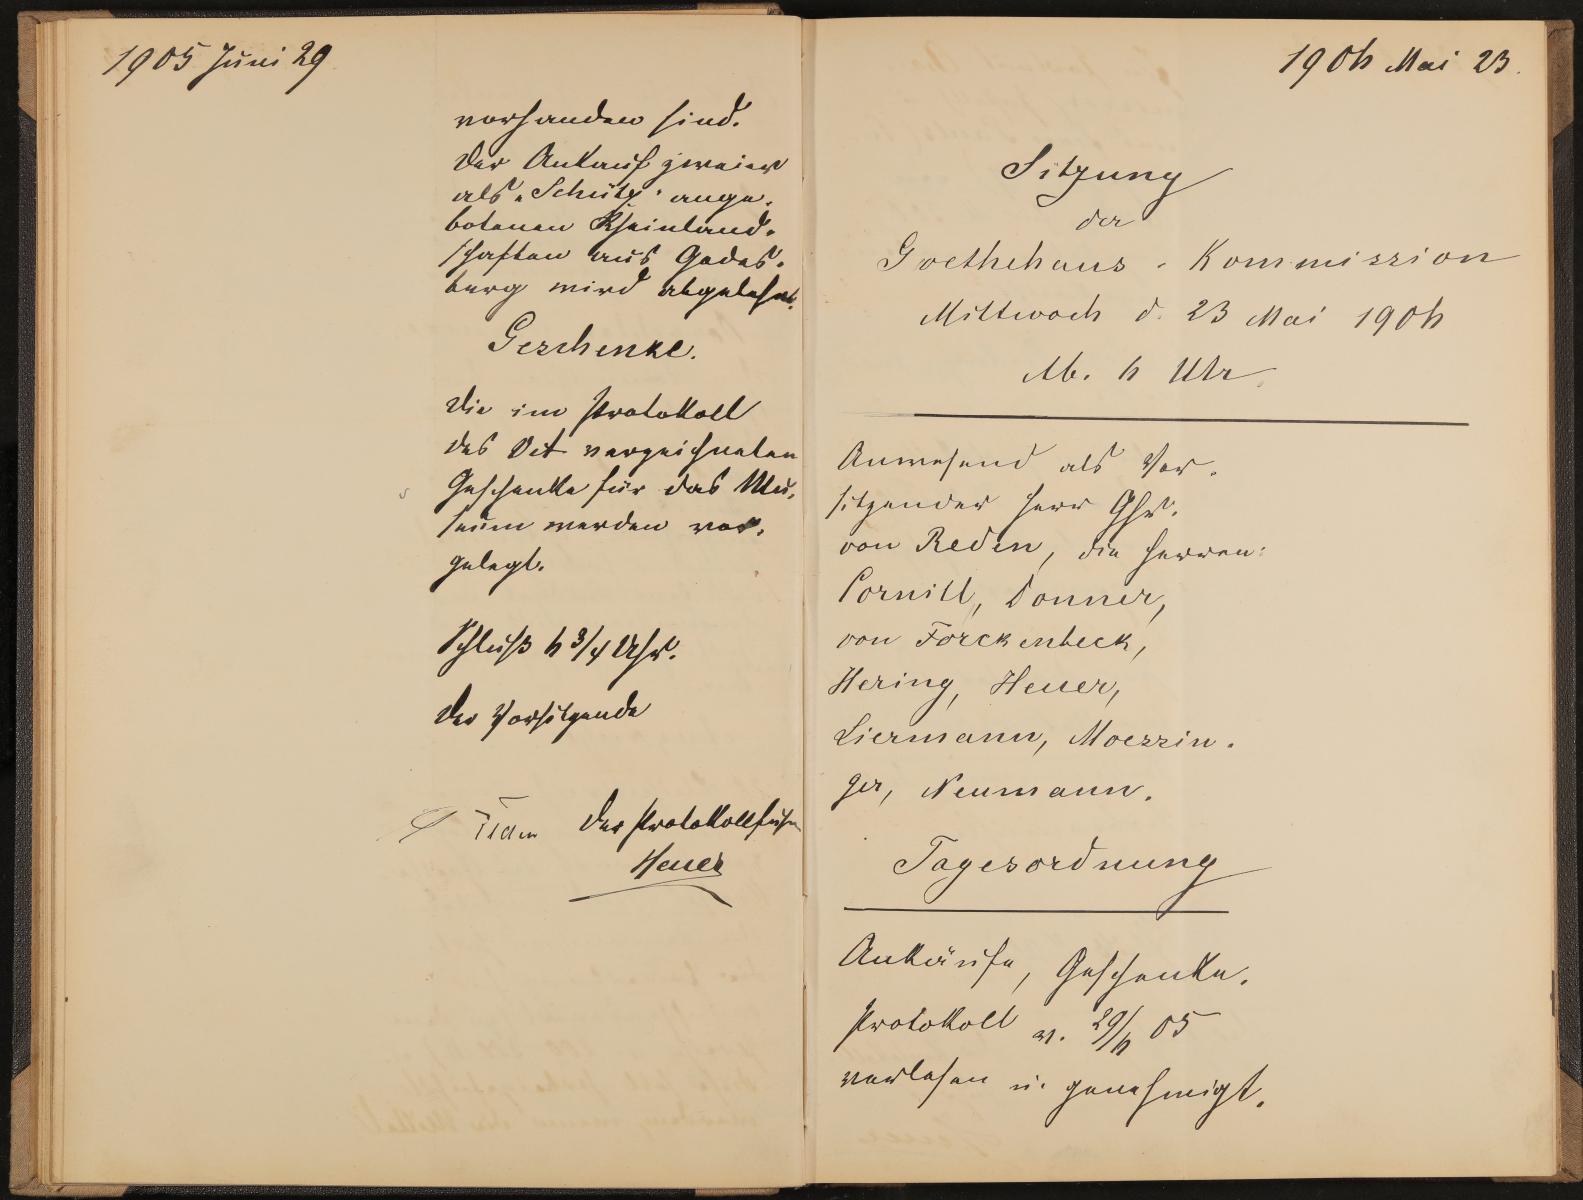 1905 Juni 29
vorhanden sind.
Der Ankauf zweier
als „Schütz" ange-
botenen Rheinland-
schaften aus Godes-
berg wird abgelehnt.
Geschenke.
Die im Protokoll
des Vet verzeichneten
Geschenke für das Mu-
seum werden vor-
gelegt.
Schluß 6 3/4 Uhr.
Der Vorsitzende
Der Protokollführer
Heuer
1906 Mai 23.
Sitzung
der
Goethehaus-Kommission
Mittwoch d. 23 Mai 1906
Ab. 6 Uhr.
Anwesend als Vor-
sitzender Herr Ghr.
von Reden, die Herren:
Cornill, Donner,
von Forckenbeck,
Hering, Heuer,
Liermann, Moessin-
ger, Neumann.
Tagesordnung
Ankäufe, Geschenke.
Protokoll v. 29/6 05
verlesen u. genehmigt.